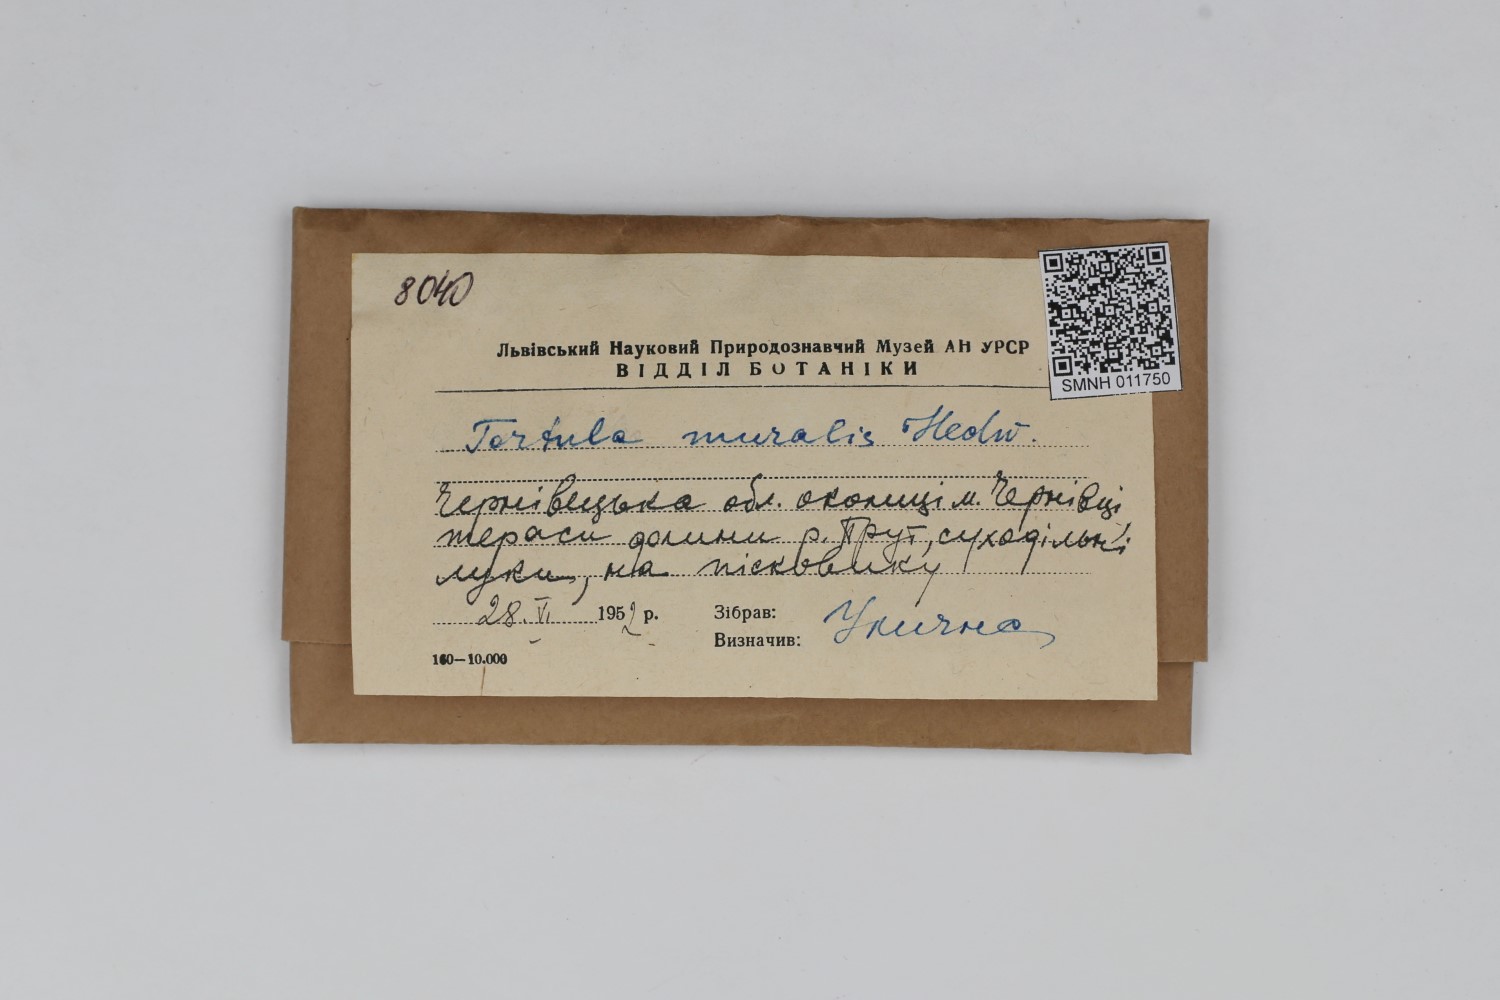 8040
Львівський Науковий Природознавчий Музей АН УРСР
ВІДДІЛ БОТАНІКИ
SMNH 011750
Tortula muralis Hedw.
Чернівецька обл. околиці м. Чернівці
тераси долини р. Прут, суходільні
луки, на пісковику
28.VI 1952 р.
Зібрав: Улична
Визначив:
160—10.000